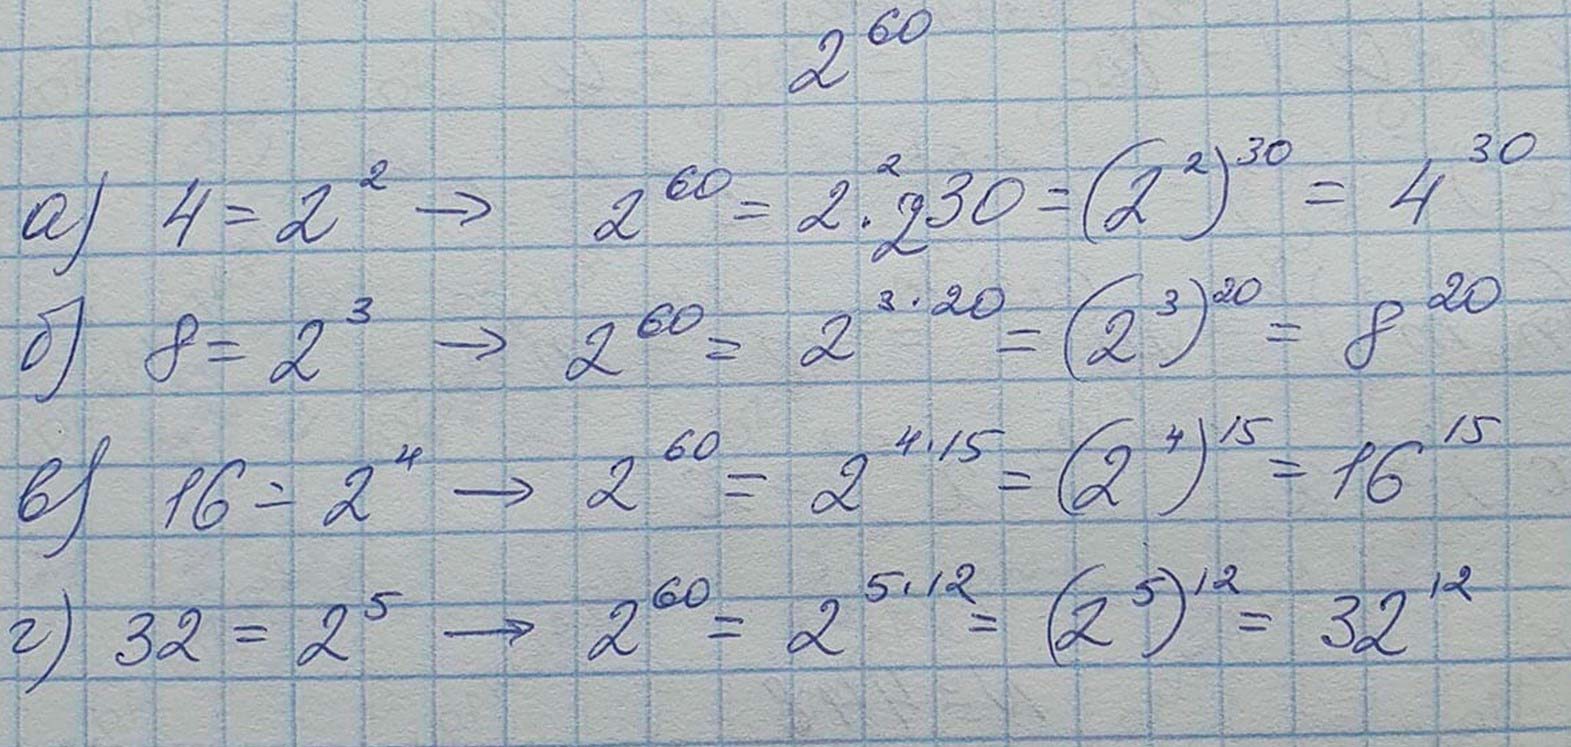 2^60
а) 4 = 2^2 → 2^60 = 2^2 · 230 = (2^2)^30 = 4^30
б) 8 = 2^3 → 2^60 = 2^3·20 = (2^3)^20 = 8^20
в) 16 = 2^4 → 2^60 = 2^4·15 = (2^4)^15 = 16^15
г) 32 = 2^5 → 2^60 = 2^5·12 = (2^5)^12 = 32^12